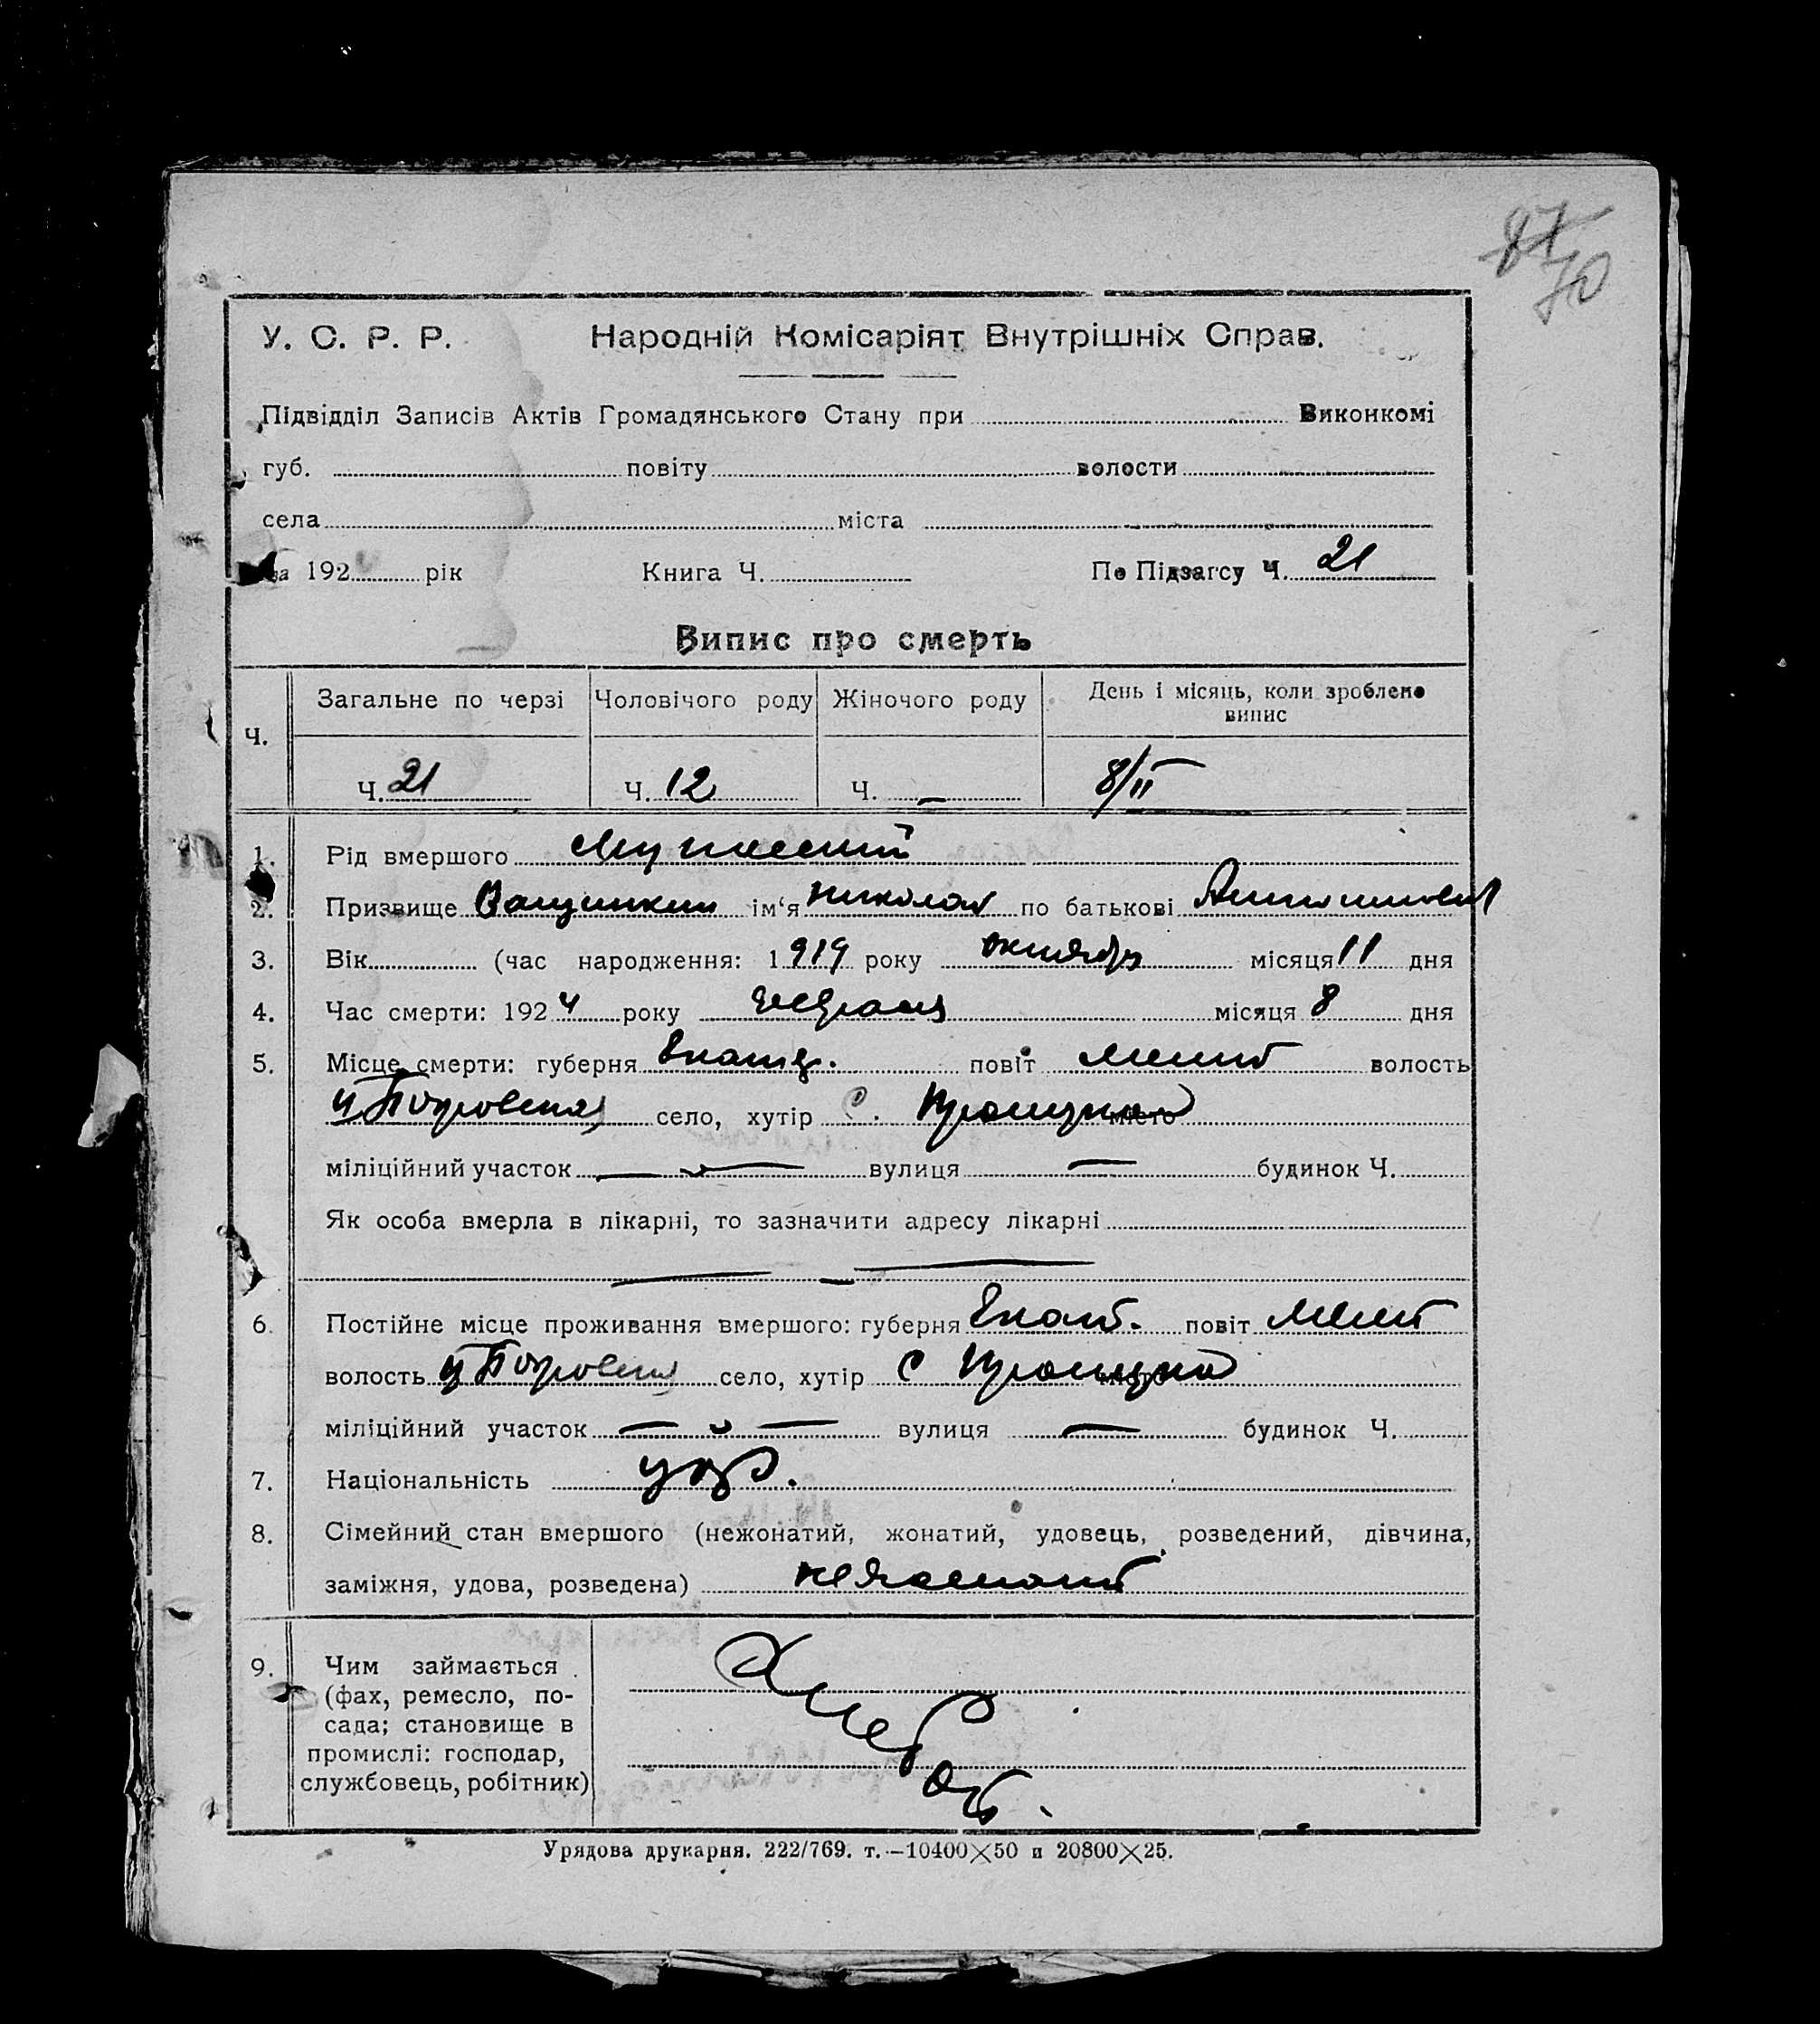 87
70
У. С. Р. Р. Народній Комісаріят Внутрішніх Справ.
Підвідділ Записів Актів Громадянського Стану при Виконкомі
губ. повіту волости
села міста
за 192 рік Книга Ч. По Підзагсу Ч. 21
Випис про смерть
Ч. Загальне по черзі Чоловічого роду Жіночого роду День і місяць, коли зроблено випис
Ч. 21 Ч. 12 Ч. – 8/II
1. Рід вмершого Мужеский
2. Призвище ім‘я Николай по батькові
3. Вік (час народження: 1919 року октября місяця 11 дня
4. Час смерти: 1924 року февраля місяця 8 дня
5. Місце смерти: губерня Екат. повіт Мелит волость
село, хутір с. Троицкое місто
міліційний участок — вулиця — будинок Ч.
Як особа вмерла в лікарні, то зазначити адресу лікарні
— — —
6. Постійне місце проживання вмершого: губерня Екат. повіт Мелит
волость село, хутір с Троицкое місто
міліційний участок — вулиця — будинок Ч.
7. Національність укр.
8. Сімейний стан вмершого (нежонатий, жонатий, удовець, розведений, дівчина,
заміжня, удова, розведена) нежонатий
9. Чим займається
(фах, ремесло, по-
сада; становище в
промислі: господар,
службовець, робітник)
Хлебор.
Урядова друкарня. 222/769. т.—10400×50 и 20800×25.